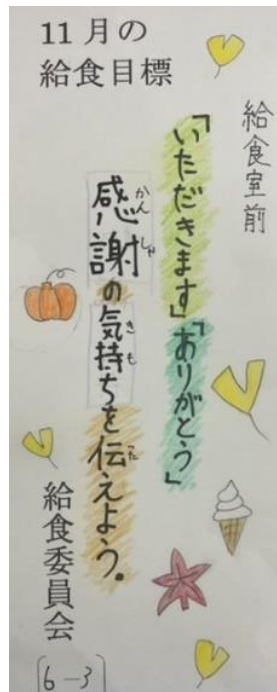 11月の
給食目標
給食室前
「いただきます」「ありがとう」
感謝の気持ちを伝えよう。
かんしゃ
きも
つた
給食委員会
6-3